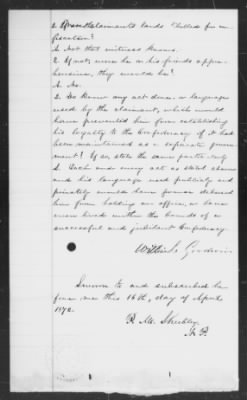 2. Were Claimants lands "billed for con
fiscation?
A. Not that witness knows.
2. If not, were he or his friends appre-
hensive, they would be?
A. No.
2. Do know any act done or language
used by the claimant, which would
have prevented him from establishing
his loyalty to the Confederacy if it had
been maintained as a separate govern
ment? If so, state the same particularly
A. Each and every act as stated above
and his language used publicly and
privately would have forever debarred
him from holding an office, or have
even lived within the bounds of a
successful and jubilant Confederacy.
Goodwin
Sworn to and subscribed be
fore me this 16th, day of April
1872.
R. M.
J. P.